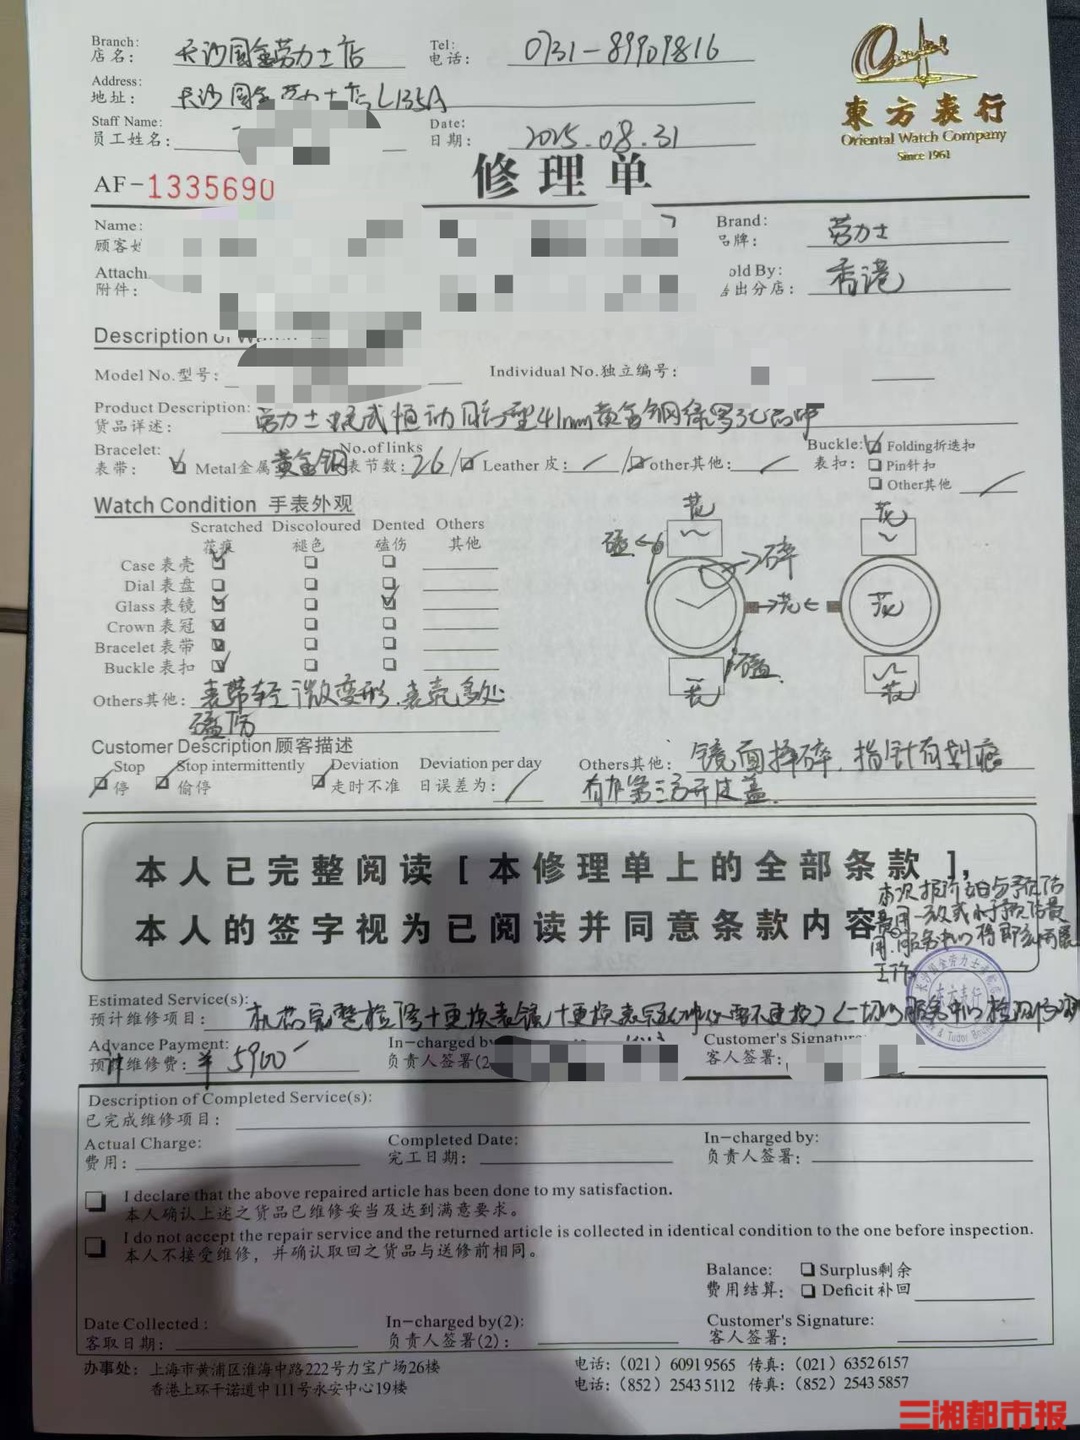 Branch:
店名： 长沙国金劳力士店
Tel:
电话： 0731-89909816
Address:
地址： 长沙国金劳力士店L135A
Staff Name:
员工姓名：
Date:
日期： 2025.08.31
東方表行
Oriental Watch Company
Since 1961
AF-1335690
修理单
Name:
顾客
Brand:
品牌： 劳力士
Attach
附件：
old By:
售出分店： 香港
Description of
Model No.型号：
Individual No.独立编号：
Product Description:
货品详述： 劳力士 恒动 41mm黄金钢
Bracelet:
表带： Metal金属 黄金钢
No.of links
表节数： 26
Leather 皮：
other其他：
Buckle:
表扣：
Folding折迭扣
Pin针扣
Other其他
Watch Condition 手表外观
Scratched Discoloured Dented Others
花痕 褪色 磕伤 其他
Case 表壳
Dial 表盘
Glass 表镜
Crown 表冠
Bracelet 表带
Buckle 表扣
花
花
磕
碎
花
花
磕
花
花
Others其他： 表带轻微变形，表壳多处
磕伤
Customer Description 顾客描述
Stop
停
Stop intermittently
偷停
Deviation
走时不准
Deviation per day
日误差为：
Others其他： 镜面摔碎，指针有划痕
有加第三方开底盖
本人已完整阅读［本修理单上的全部条款］，
本人的签字视为已阅读并同意条款内容
Estimated Service(s):
预计维修项目： 机芯完整检修+更换表镜+更换表冠
东方表行
Advance Payment:
预计维修费： ¥ 5900
In-charged by
负责人签署(2
Customer's Signature
客人签署：
Description of Completed Service(s):
已完成维修项目：
Actual Charge:
费用：
Completed Date:
完工日期：
In-charged by:
负责人签署：
I declare that the above repaired article has been done to my satisfaction.
本人确认上述之货品已维修妥当及达到满意要求。
I do not accept the repair service and the returned article is collected in identical condition to the one before inspection.
本人不接受维修，并确认取回之货品与送修前相同。
Balance:
费用结算：
Surplus剩余
Deficit 补回
Date Collected :
客取日期：
In-charged by(2):
负责人签署(2)：
Customer's Signature:
客人签署：
办事处： 上海市黄浦区淮海中路222号力宝广场26楼
电话：(021) 6091 9565 传真：(021) 6352 6157
香港上环干诺道中111号永安中心19楼
电话：(852) 2543 5112 传真：(852) 2543 5857
三湘都市报